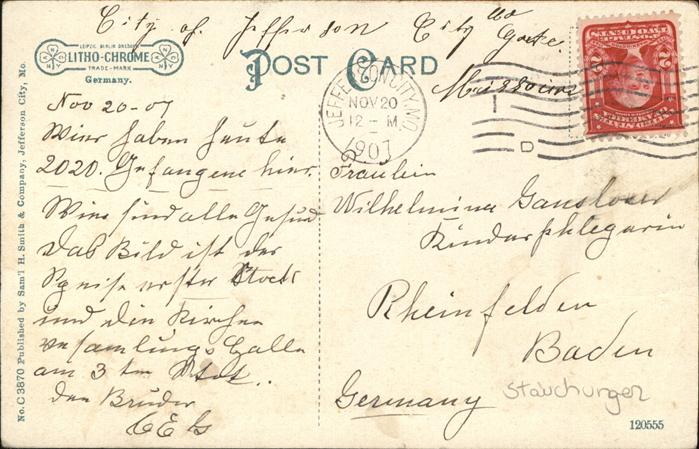 City of Jefferson City Mo
Cole Co.
Missouri
LEIPZIG BERLIN DRESDEN
LITHO-CHROME
TRADE-MARK
Germany.
POST CARD
JEFFERSON CITY, MO.
NOV 20
12 - M
1907
D
Nov 20-07
Wier haben heute
2020. Gefangene hier.
Wier sind alle Gesund
Das Bild ist der
Speise erster Stock
und die Kirchen
versamlungs Halle
am 3 ten Stok..
dein Bruder
Fräulein
Wilhelmina
Kinderphlegerin
Rheinfelden
Baden
Germany
120555
No. C 3870 Published by Sam'l H. Smith & Company, Jefferson City, Mo.